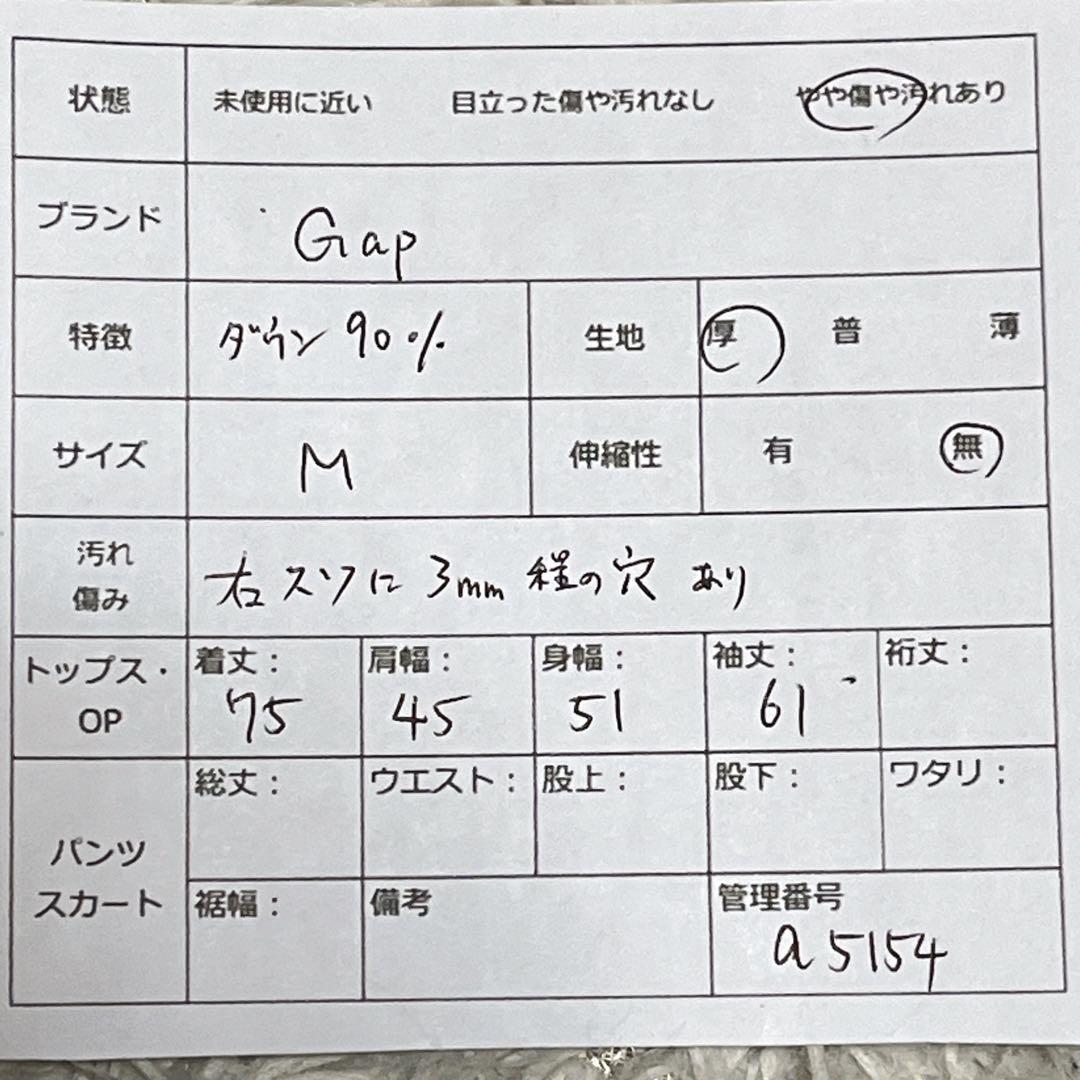 状態 未使用に近い 目立った傷や汚れなし やや傷や汚れあり
ブランド Gap
特徴 ダウン 90% 生地 厚 普 薄
サイズ M 伸縮性 有 無
汚れ
傷み
右スソに 3mm 程の穴 あり
トップス・
OP
着丈: 肩幅: 身幅: 袖丈: 裄丈:
75 45 51 61
パンツ
スカート
総丈: ウエスト: 股上: 股下: ワタリ:
裾幅: 備考 管理番号
a5154